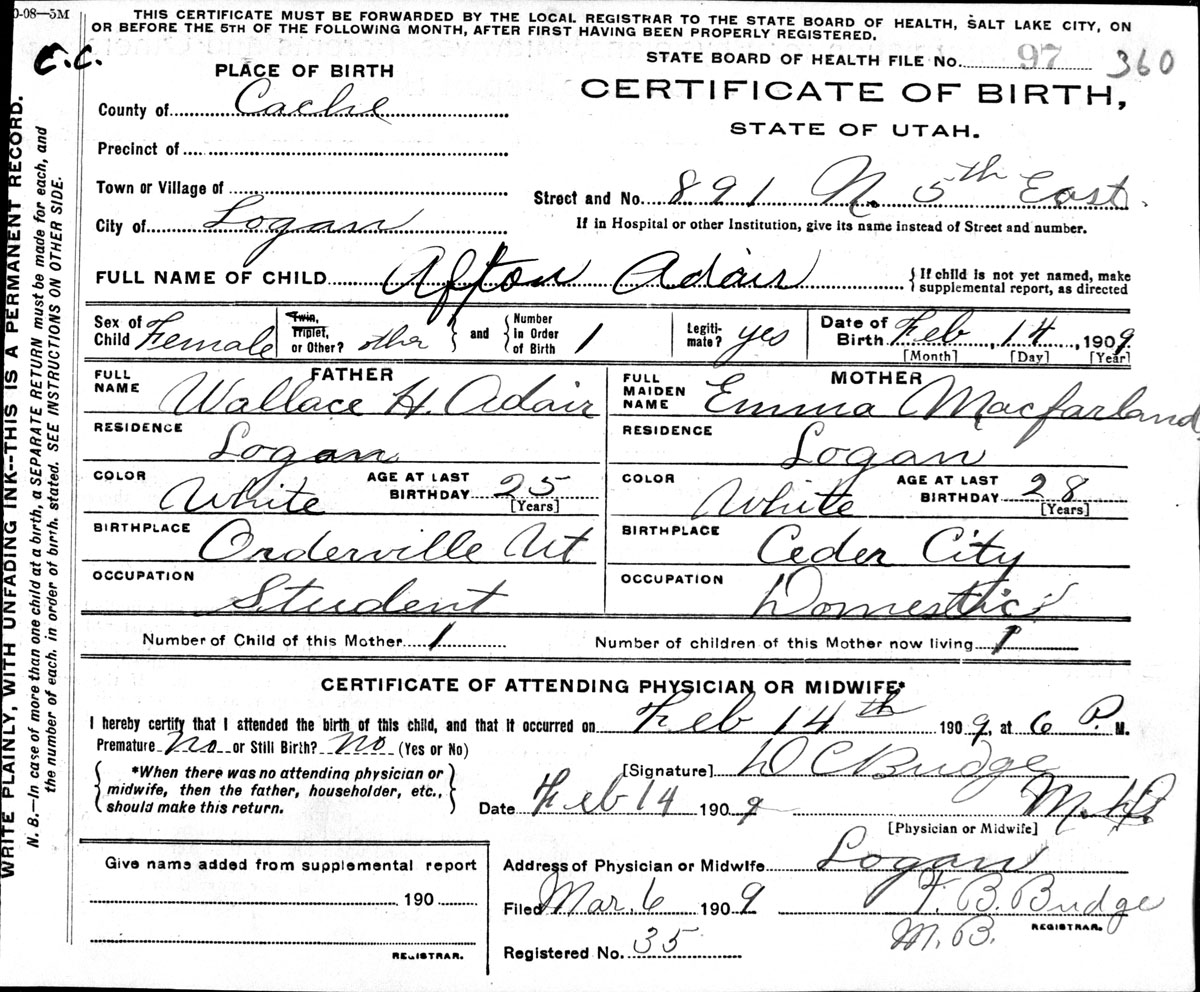 0-08—5M
THIS CERTIFICATE MUST BE FORWARDED BY THE LOCAL REGISTRAR TO THE STATE BOARD OF HEALTH, SALT LAKE CITY, ON
OR BEFORE THE 5TH OF THE FOLLOWING MONTH, AFTER FIRST HAVING BEEN PROPERLY REGISTERED.
C.C.
STATE BOARD OF HEALTH FILE No. 97 360
PLACE OF BIRTH
CERTIFICATE OF BIRTH,
STATE OF UTAH.
County of Cache
Precinct of
Town or Village of
Street and No. 891 N. 5th East.
City of Logan
If in Hospital or other Institution, give its name instead of Street and number.
FULL NAME OF CHILD Afton Adair
{ If child is not yet named, make
supplemental report, as directed
Sex of Child Female
Twin, Triplet, or Other? other } and { Number in Order of Birth 1
Legiti-mate? yes
Date of Birth Feb, 14, 1909
[Month] [Day] [Year]
FATHER
FULL NAME Wallace H. Adair
RESIDENCE
Logan
COLOR White AGE AT LAST BIRTHDAY 25
[Years]
BIRTHPLACE
Orderville Ut
OCCUPATION
Student
MOTHER
FULL MAIDEN NAME Emma Macfarland
RESIDENCE
Logan
COLOR White AGE AT LAST BIRTHDAY 28
[Years]
BIRTHPLACE
Ceder City
OCCUPATION
Domestic
Number of Child of this Mother 1 Number of children of this Mother now living 1
CERTIFICATE OF ATTENDING PHYSICIAN OR MIDWIFE*
I hereby certify that I attended the birth of this child, and that it occurred on Feb 14th 1909, at 6 P. M.
Premature No or Still Birth? No (Yes or No)
{ *When there was no attending physician or
midwife, then the father, householder, etc.,
should make this return. }
[Signature] D C Budge
Date Feb 14 1909 M.D.
[Physician or Midwife]
Give name added from supplemental report
190
REGISTRAR.
Address of Physician or Midwife Logan
Filed Mar. 6 1909 F. B. Budge
REGISTRAR.
M.B.
Registered No. 35
WRITE PLAINLY, WITH UNFADING INK--THIS IS A PERMANENT RECORD.
N. B.—In case of more than one child at a birth, a SEPARATE RETURN must be made for each, and
the number of each, in order of birth, stated. SEE INSTRUCTIONS ON OTHER SIDE.